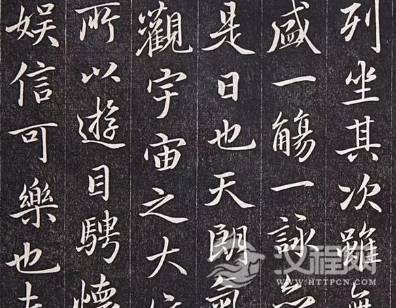 列坐其次雖
盛一觴一詠
是日也天朗氣
觀宇宙之大
所以遊目騁懷
娛信可樂也
汉程网
HTTPCN.COM